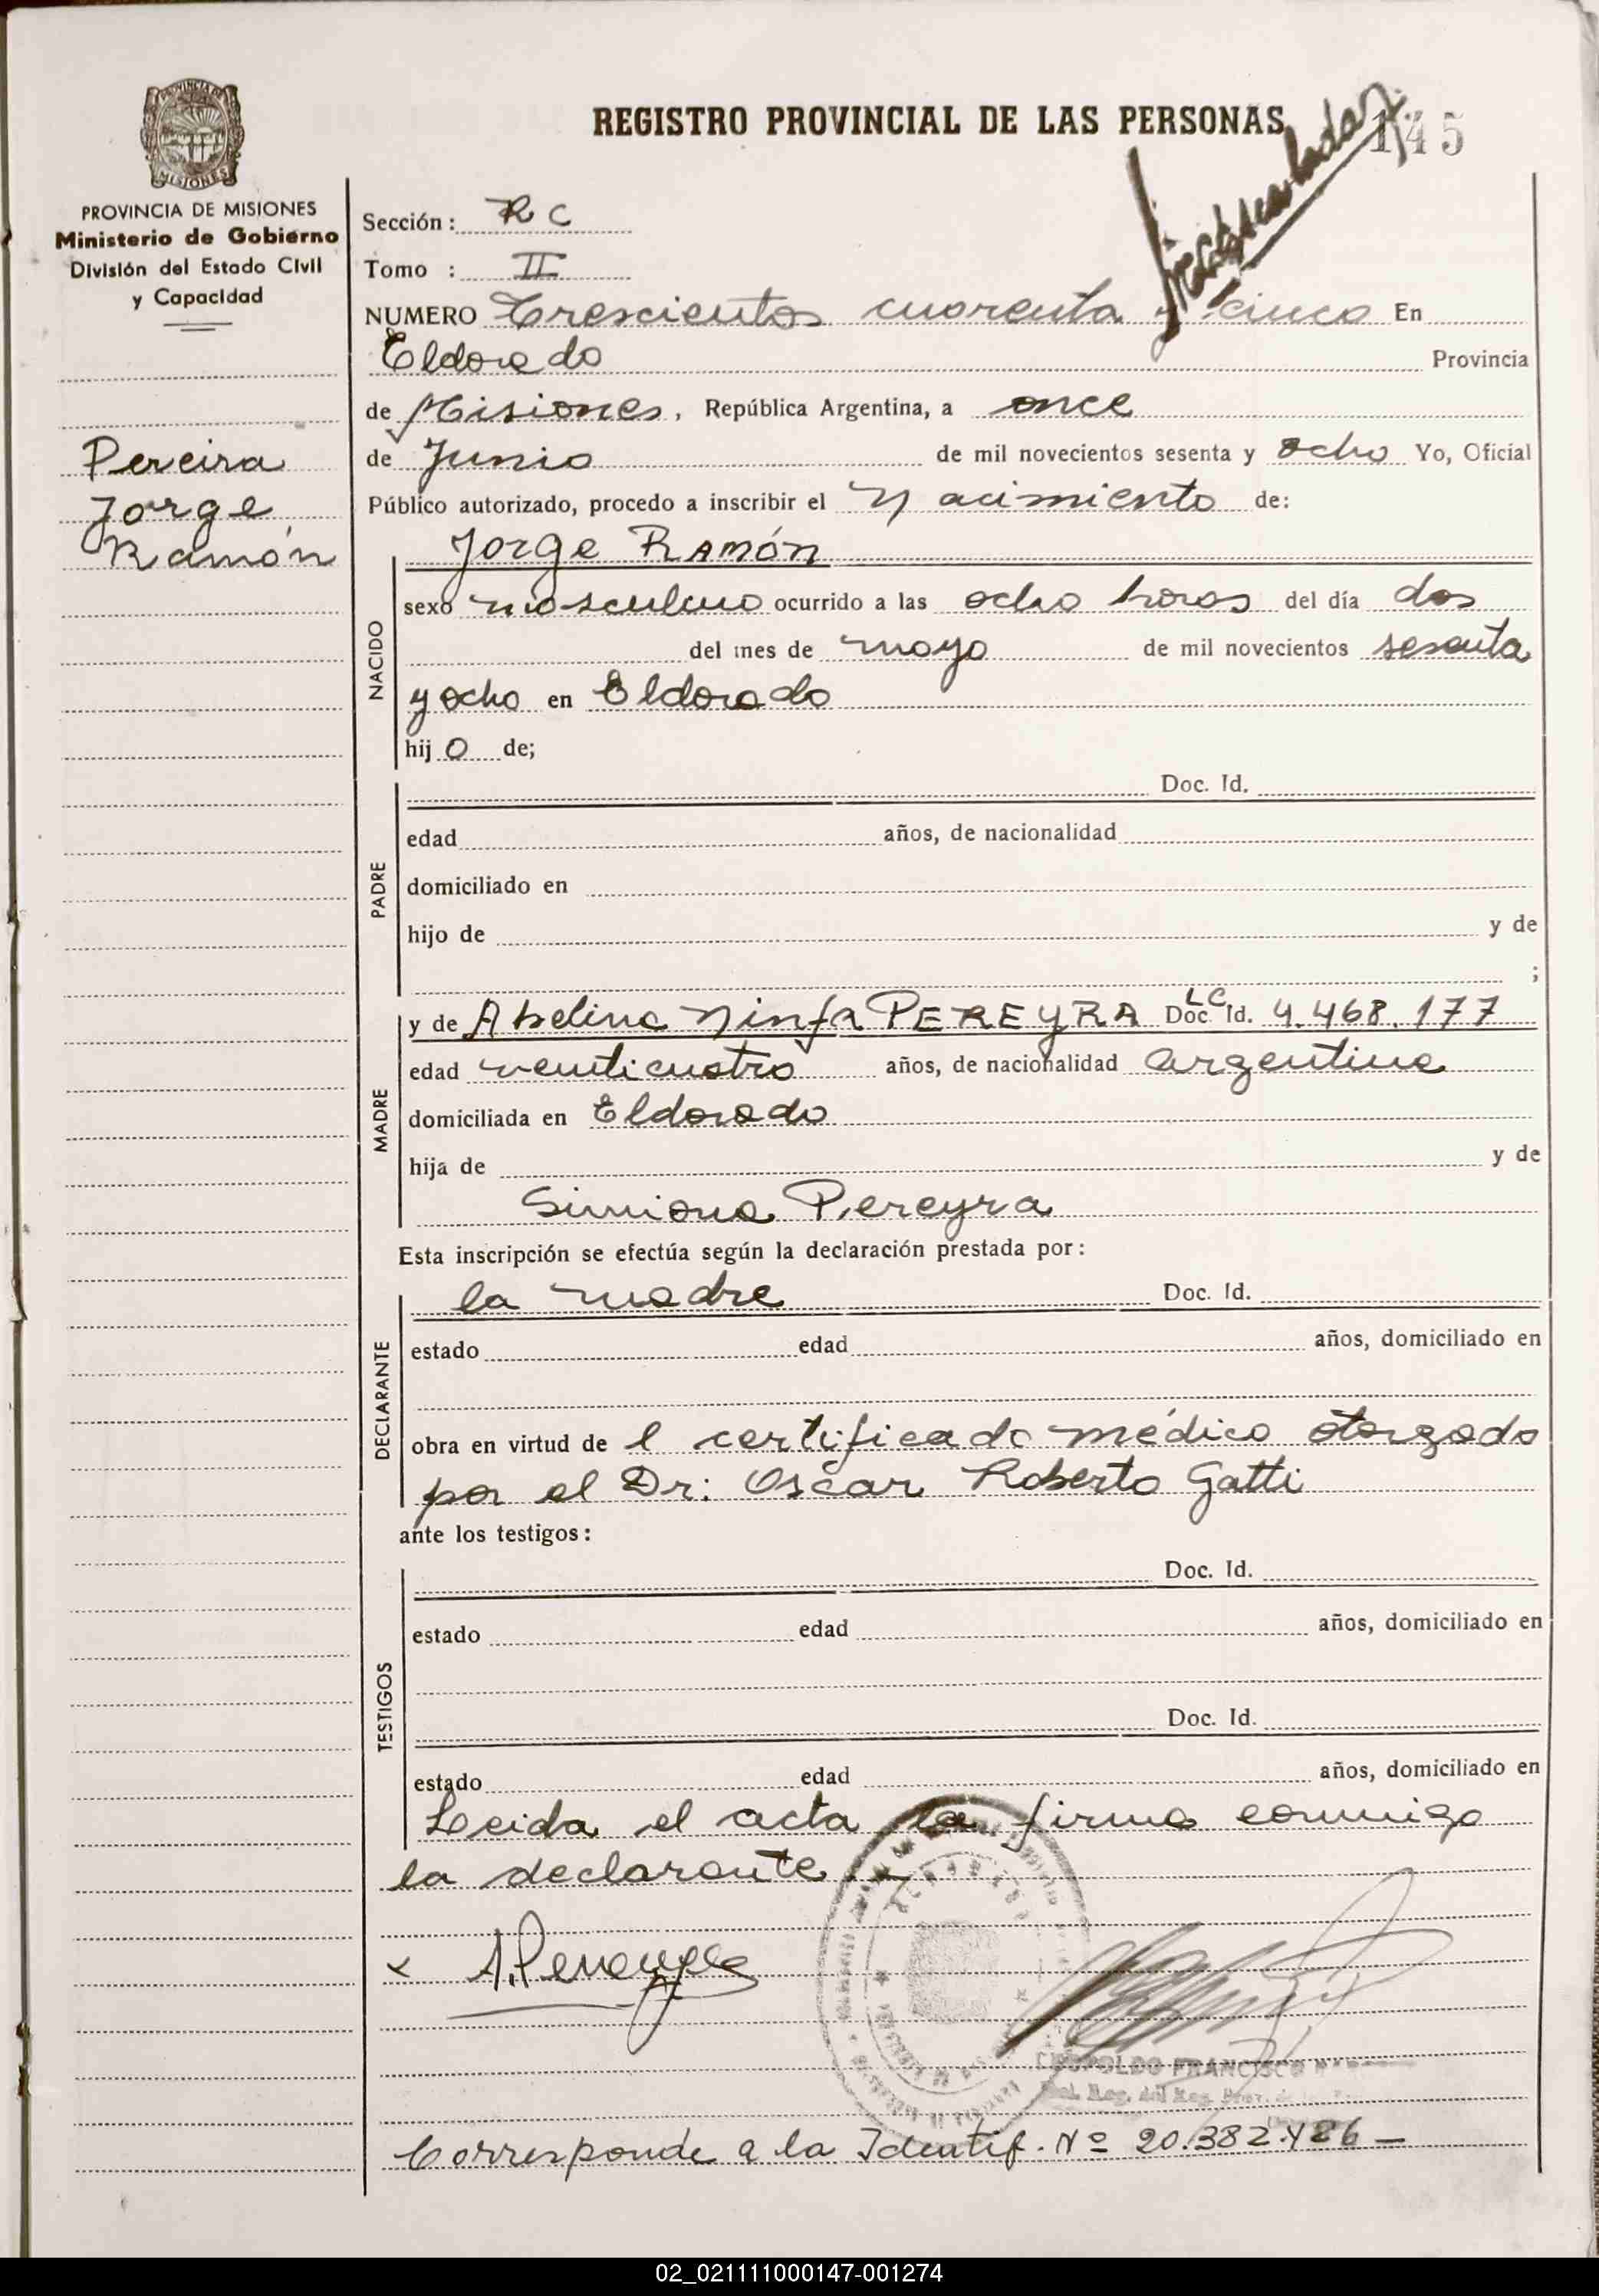 REGISTRO PROVINCIAL DE LAS PERSONAS
145
PROVINCIA DE MISIONES
MISIONES
PROVINCIA DE MISIONES
Ministerio de Gobierno
División del Estado Civil
y Capacidad
Pereira
Jorge
Ramón
Sección: R C
Tomo : II
NUMERO Trescientos cuarenta y cinco En
Eldorado Provincia
de Misiones, República Argentina, a once
de Junio de mil novecientos sesenta y ocho Yo, Oficial
Público autorizado, procedo a inscribir el Nacimiento de:
NACIDO
Jorge Ramón
sexo masculino ocurrido a las ocho horas del día dos
del mes de mayo de mil novecientos sesenta
y ocho en Eldorado
hij o de;
PADRE
Doc. Id.
edad años, de nacionalidad
domiciliado en
hijo de y de
;
MADRE
y de Abelina Ninfa PEREYRA LC Doc. Id. 4.468.177
edad veinticuatro años, de nacionalidad argentina
domiciliada en Eldorado
hija de y de
Simiona Pereyra
Esta inscripción se efectúa según la declaración prestada por:
DECLARANTE
la madre Doc. Id.
estado edad años, domiciliado en
obra en virtud de l certificado médico otorgado
por el Dr: Oscar Roberto Gatti
ante los testigos:
TESTIGOS
Doc. Id.
estado edad años, domiciliado en
Doc. Id.
estado edad años, domiciliado en
Leida el acta la firma conmigo
la declarante
x A. Pereyra
LEOPOLDO FRANCISCO
Corresponde a la Identif. Nº 20.382.486 —
02_021111000147-001274